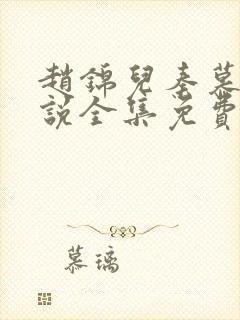 趙錦兒秦慕
說全集免費
慕璃